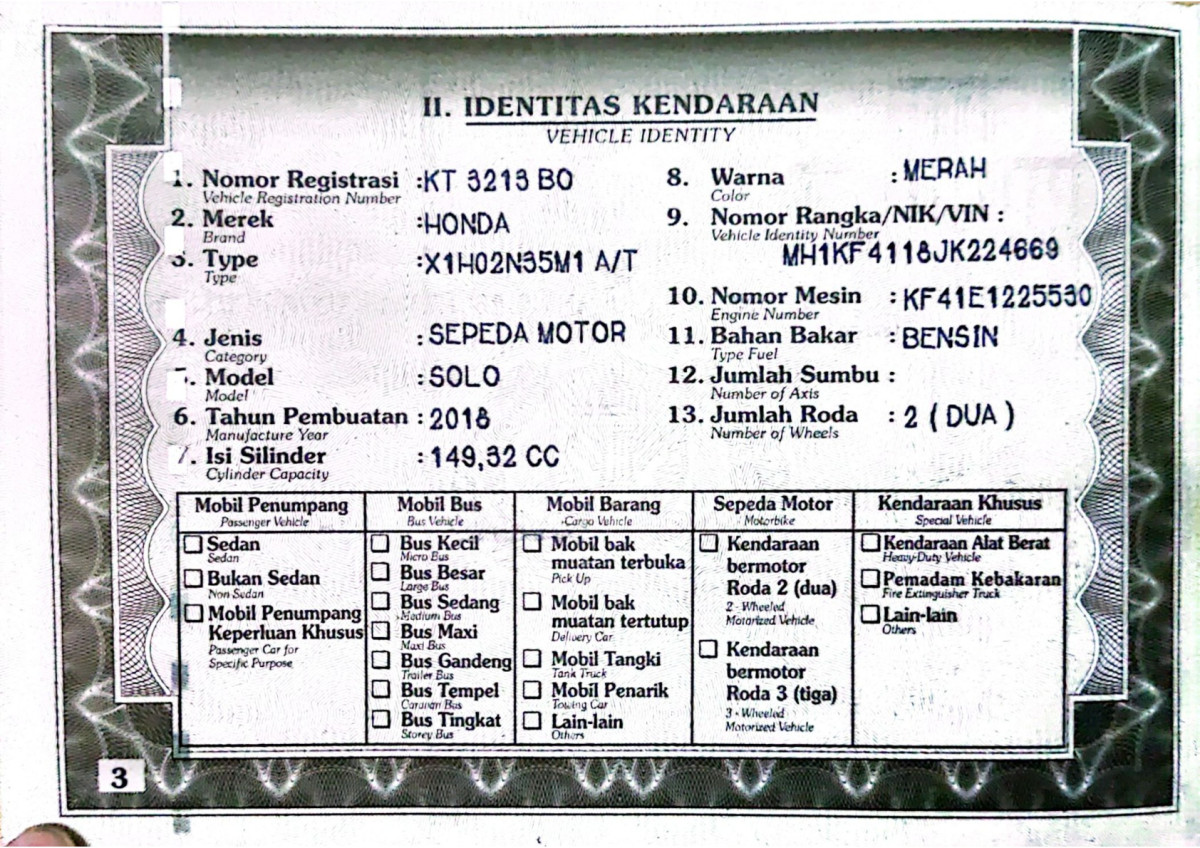 II. IDENTITAS KENDARAAN
VEHICLE IDENTITY
1. Nomor Registrasi :KT 3213 BO
Vehicle Registration Number
2. Merek :HONDA
Brand
3. Type :X1H02N35M1 A/T
Type
4. Jenis :SEPEDA MOTOR
Category
. Model :SOLO
Model
6. Tahun Pembuatan : 2018
Manufacture Year
7. Isi Silinder : 149,32 CC
Cylinder Capacity
8. Warna :MERAH
Color
9. Nomor Rangka/NIK/VIN :
Vehicle Identity Number
MH1KF4118JK224669
10. Nomor Mesin :KF41E1225530
Engine Number
11. Bahan Bakar :BENSIN
Type Fuel
12. Jumlah Sumbu :
Number of Axis
13. Jumlah Roda : 2 ( DUA )
Number of Wheels
Mobil Penumpang
Passenger Vehicle
Sedan
Sedan
Bukan Sedan
Non Sedan
Mobil Penumpang
Keperluan Khusus
Passenger Car for
Specific Purpose
Mobil Bus
Bus Vehicle
Bus Kecil
Micro Bus
Bus Besar
Large Bus
Bus Sedang
Medium Bus
Bus Maxi
Maxi Bus
Bus Gandeng
Trailer Bus
Bus Tempel
Caravan Bus
Bus Tingkat
Storey Bus
Mobil Barang
Cargo Vehicle
Mobil bak
muatan terbuka
Pick Up
Mobil bak
muatan tertutup
Delivery Car
Mobil Tangki
Tank Truck
Mobil Penarik
Towing Car
Lain-lain
Others
Sepeda Motor
Motorbike
Kendaraan
bermotor
Roda 2 (dua)
2 - Wheeled
Motorized Vehicle
Kendaraan
bermotor
Roda 3 (tiga)
3 - Wheeled
Motorized Vehicle
Kendaraan Khusus
Special Vehicle
Kendaraan Alat Berat
Heavy-Duty Vehicle
Pemadam Kebakaran
Fire Extinguisher Truck
Lain-lain
Others
3